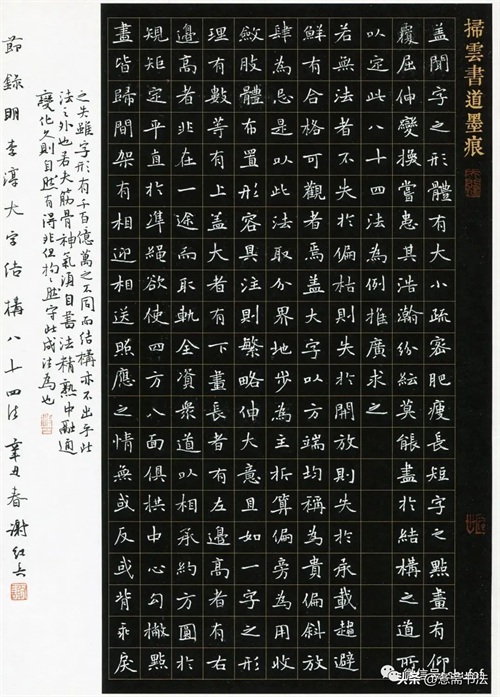 掃雲書道墨痕
盖聞字之形體有大小疏密肥瘦長短字之點畫有仰
覆屈伸變换嘗患其浩瀚紛紜莫能盡於結構之道所
以定此八十四法為例推廣求之
若無法者不失於偏枯則失於開放則失於承載趨避
鮮有合格可觀者焉盖大字以方端均稱為貴偏斜放
肆為忌是以此法取分界地步為主折算偏旁為用收
斂肢體布置形容具注則繁略伸大意且如一字之形
理有數等有上盖大者有下畫長者有左邊高有右
邊高者非在一途而取軌全資衆道以相承約方圓於
規矩定平直於準繩欲使四方八面俱拱中心勾撇點
畫皆歸間架有相迎相送照應之情無或反或背乖戾
之失雖字形有千百億萬之不同而結構亦不出乎此
法之外也若夫筋骨神氣須自書法精熟中融通
變化久則自然有得非但拘然守此成法為也
節錄明李淳大字結構八十四法 辛丑春謝紅兵
微信号
头条@慈斋书法